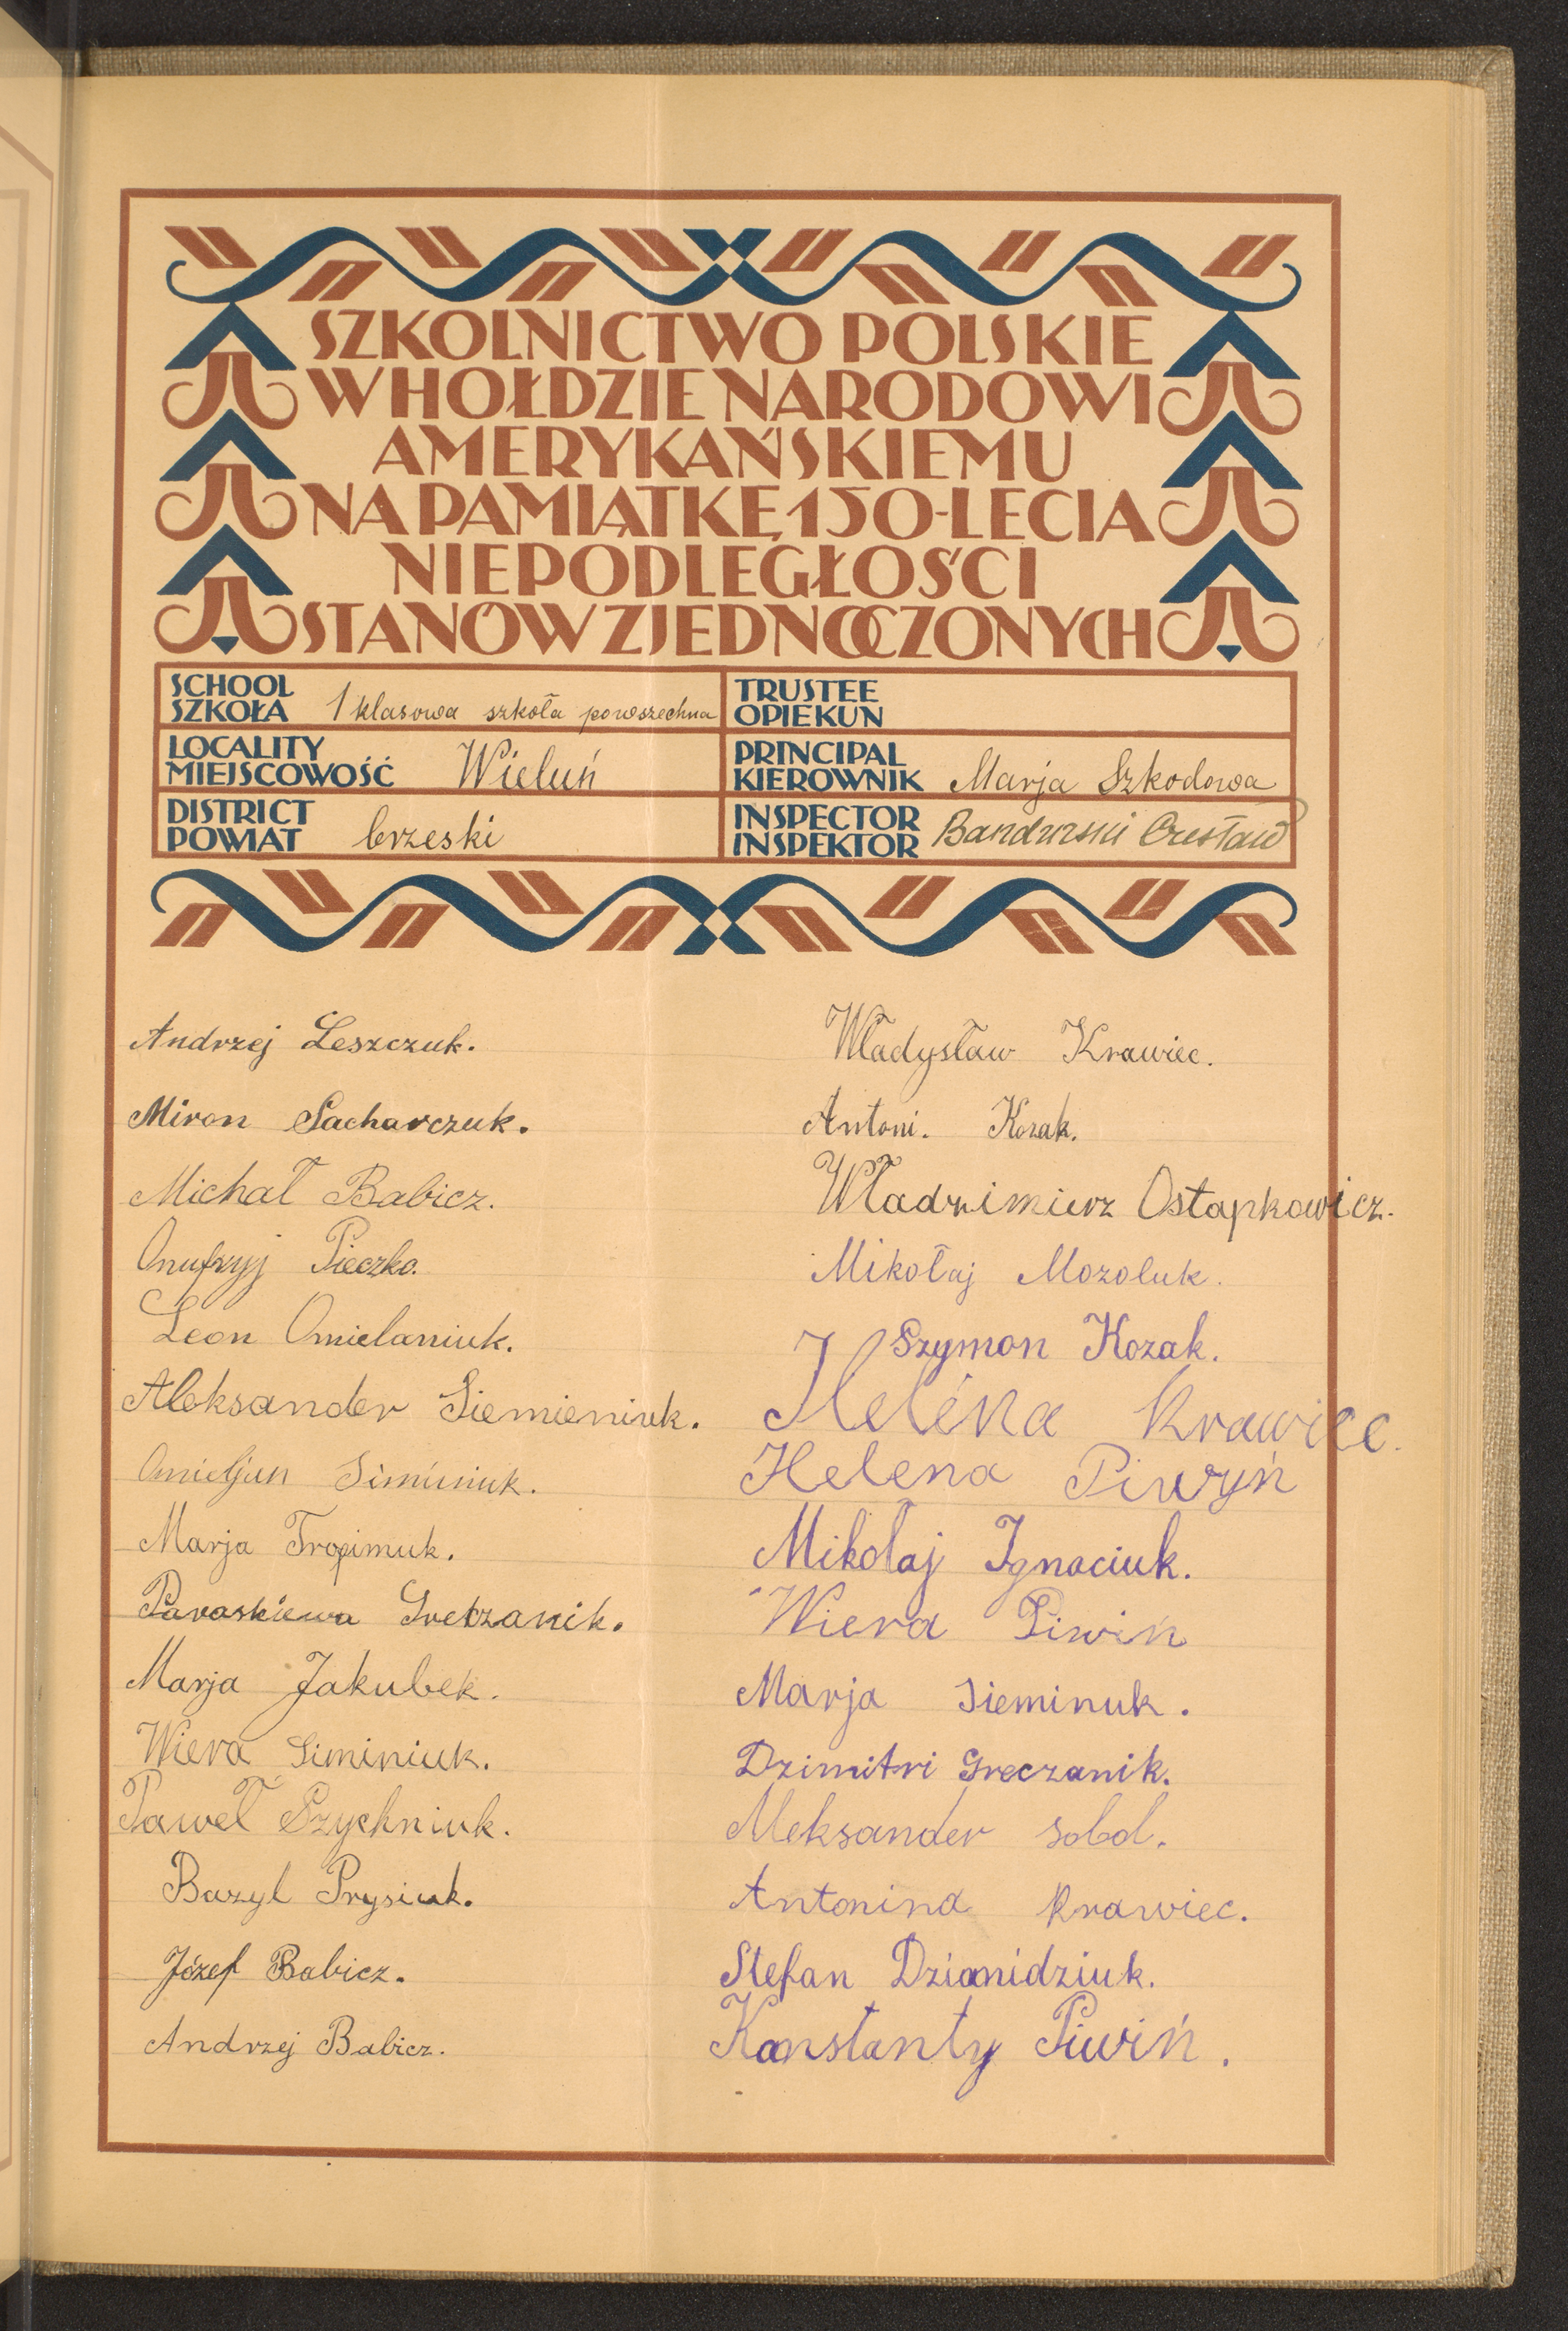 SZKOLNICTWO POLSKIE
W HOŁDZIE NARODOWI
AMERYKAŃSKIEMU
NA PAMIĄTKĘ 150-LECIA
NIEPODLEGŁOŚCI
STANÓW ZJEDNOCZONYCH
SCHOOL
SZKOŁA 1 klasowa szkoła powszechna
TRUSTEE
OPIEKUN
LOCALITY
MIEJSCOWOŚĆ Wieluń
PRINCIPAL
KIEROWNIK Marja Szkodowa
DISTRICT
POWIAT brzeski
INSPECTOR
INSPEKTOR Bandurski Czesław
Andrzej Leszczuk.
Miron Sacharczuk.
Michał Babicz.
Onufryj Pieczko.
Leon Omielaniuk.
Aleksander Siemieniuk.
Omieljan Siminiuk.
Marja Tropimuk.
Paraskiewa Greczanik.
Marja Jakubek.
Wiera Siminiuk.
Paweł Szychniuk.
Bazyl Prysiuk.
Józef Babicz.
Andrzej Babicz.
Władysław Krawiec.
Antoni. Kozak.
Władzimierz Ostapkowicz.
Mikołaj Mozoluk.
Szymon Kozak.
Helena Krawiec.
Helena Piwyń
Mikołaj Ignaciuk.
Wiera Piwiń
Marja Sieminuk.
Dzimitri Greczanik.
Aleksander Sobol.
Antonina Krawiec.
Stefan Dzianidziuk.
Konstanty Piwiń.